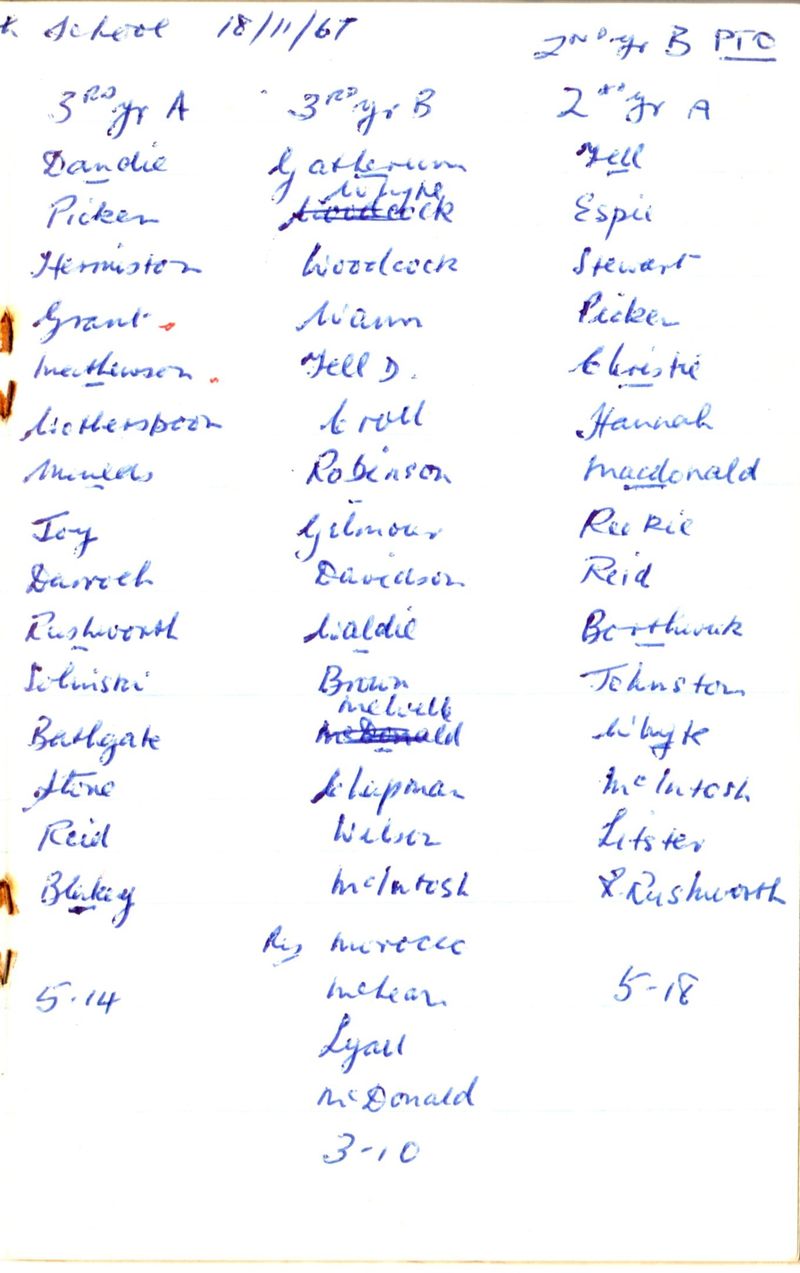 School 18/11/67
2ND yr B PTO
3RD yr A
Dandie
Picken
Hermiston
Grant
Mathewson
Wotherspoon
Moulds
Joy
Darroch
Rushworth
Solinski
Bathgate
Stone
Reid
Blakey
5-14
3RD yr B
Gatherum
Whyte
Woodcock
Woodcock
Wann
Fell D.
Croll
Robinson
Gilmour
Davidson
Waldie
Brown
Melville
McDonald
Chapman
Wilson
McIntosh
Res Morocco
McLean
Lyall
McDonald
3-10
2ND yr A
Fell
Espie
Stewart
Picken
Christie
Hannah
Macdonald
Reekie
Reid
Borthwick
Johnston
Whyte
McIntosh
Litster
Rushworth
5-18